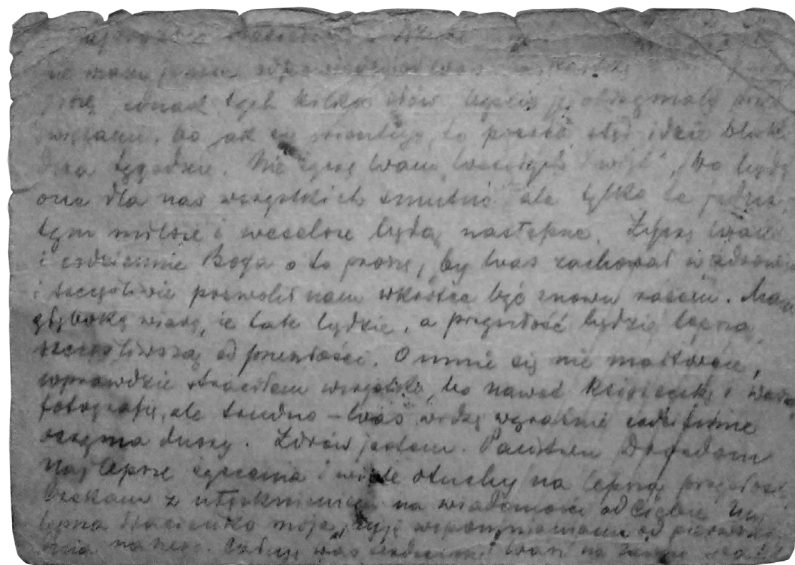 nie mam jeszcze odpowiedzi od Was
piszę jednak tych kilka słów, byście je otrzymały przed
świętami, bo jak się orientuję, to poczta stąd idzie blisko
dwa tygodnie. Nie życzę Wam wesołych Świąt, bo będą
one dla nas wszystkich smutne ale tylko te jedne,
tym milsze i weselsze będą następne. Życzę Wam
i codziennie Boga o to proszę, by Was zachował w zdrowiu
i szczęśliwie pozwolił nam wkrótce być znowu razem. Mam
głęboką wiarę, że tak będzie, a przyszłość będzie lepsza,
szczęśliwsza od przeszłości. O mnie się nie martwcie,
wprawdzie straciłem wszystko, bo nawet książeczkę i Waszą
fotografię, ale trudno – Was widzę wyraźnie codziennie
oczyma duszy. Zdrów jestem. Państwu
najlepsze życzenia i wiele otuchy na lepszą przyszłość.
Czekam z utęsknieniem na wiadomości od Ciebie
moja, żyję wspomnieniami od
naszego. Całuję Was serdecznie Wasz na zawsze